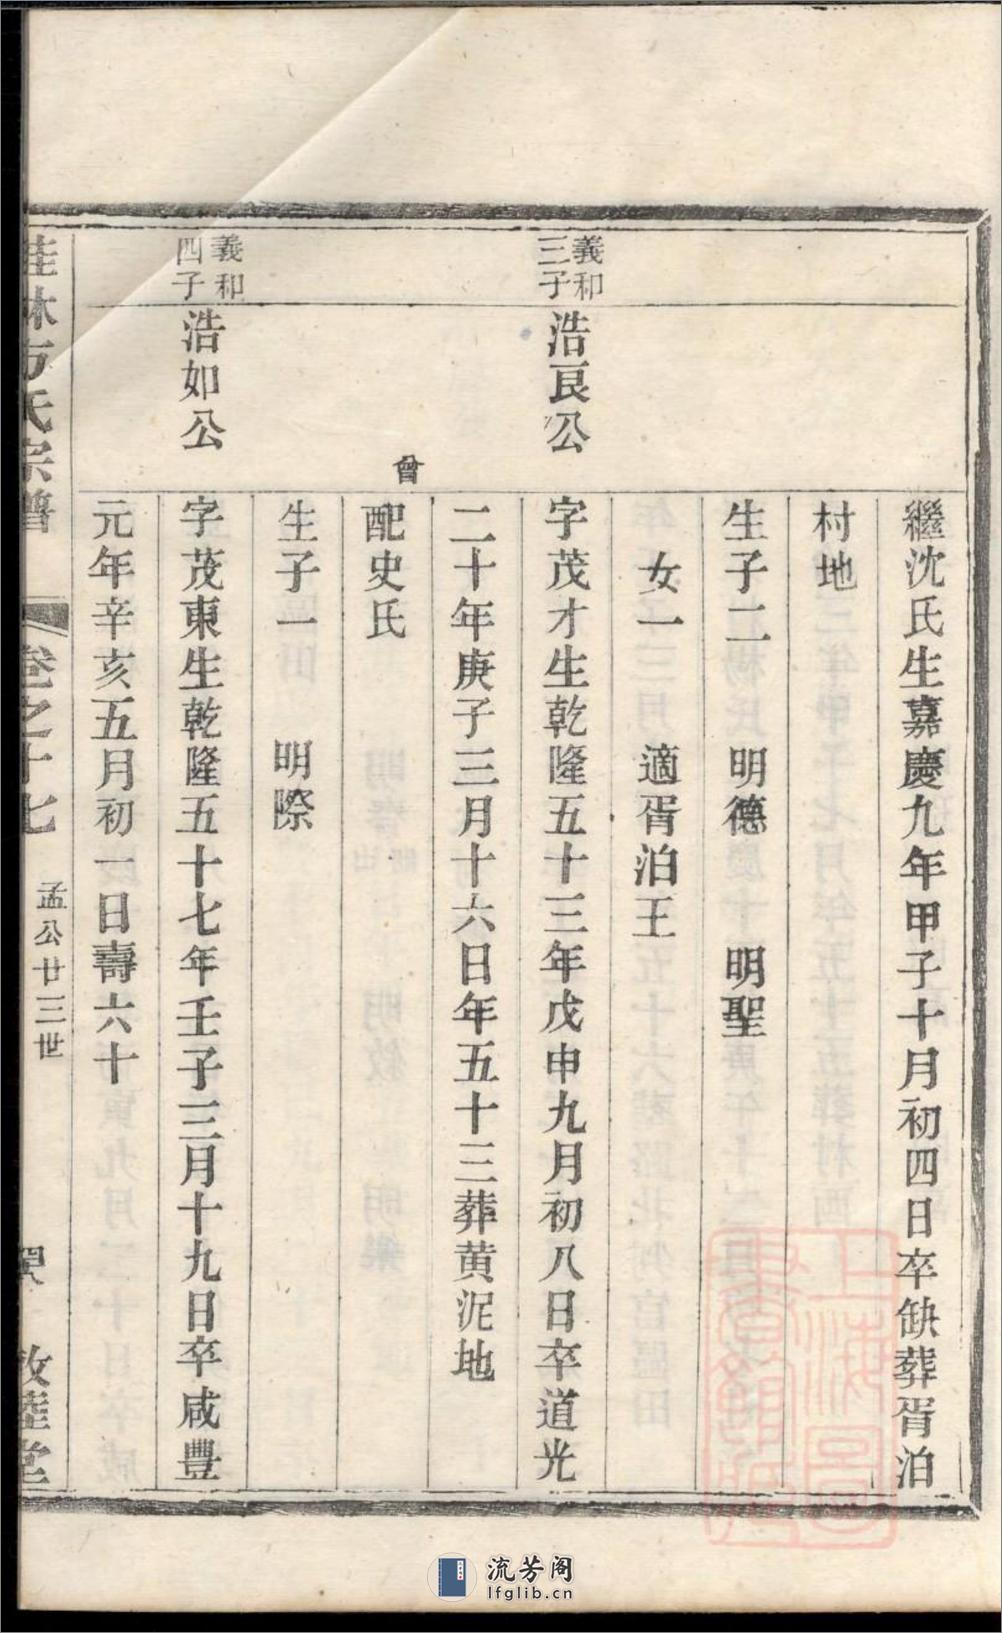 繼沈氏生嘉慶九年甲子十月初四日卒缺葬胥泊
村地
生子二　明德　明聖
女一　適胥泊王
義和
三子
浩良公
字茂才生乾隆五十三年戊申九月初八日卒道光
二十年庚子三月十六日年五十三葬黄泥地
曾
配史氏
生子一　明際
義和
四子
浩如公
字茂東生乾隆五十七年壬子三月十九日卒咸豐
元年辛亥五月初一日壽六十
桂林方氏宗譜
卷之十七
孟公廿三世
敦睦堂
上海圖書館藏
流芳阁
lfglib.cn